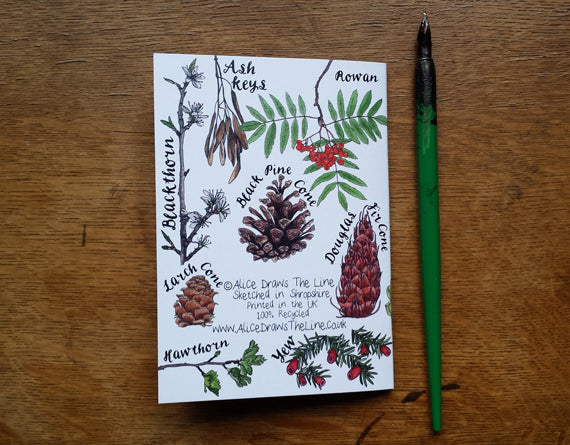 Ash
keys
Rowan
Blackthorn
Black Pine
Cone
Douglas
Fir Cone
Larch Cone
© Alice Draws The Line
Sketched in Shropshire
Printed in the UK
100% Recycled
www.AliceDrawsTheLine.co.uk
Hawthorn
Yew